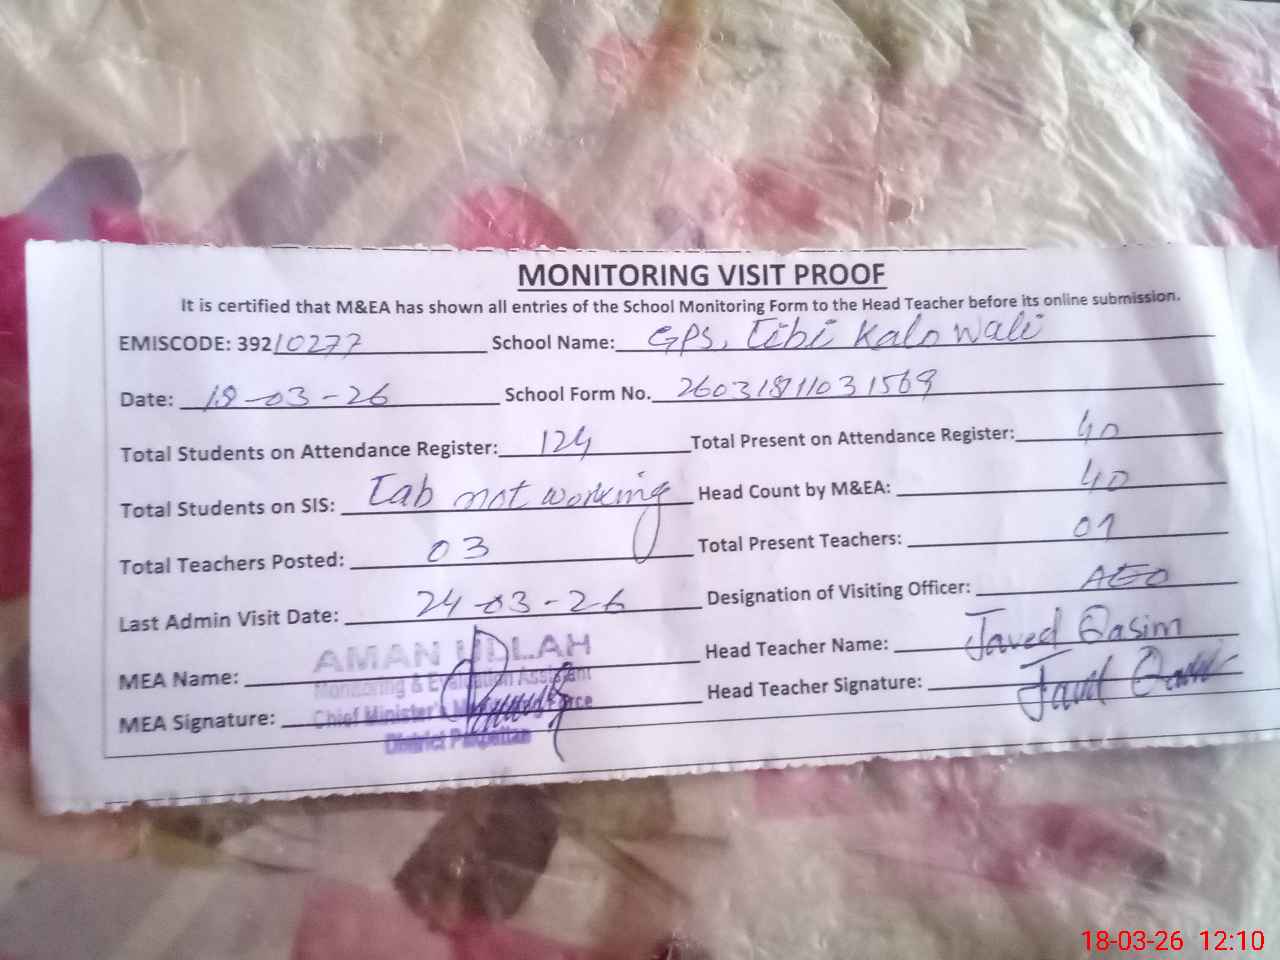 MONITORING VISIT PROOF
It is certified that M&EA has shown all entries of the School Monitoring Form to the Head Teacher before its online submission.
EMISCODE: 39210277 School Name: GPS, Tibi Kalo Wali
Date: 18-03-26 School Form No. 260318111031569
Total Students on Attendance Register: 124 Total Present on Attendance Register: 40
Total Students on SIS: Tab not working Head Count by M&EA: 40
Total Teachers Posted: 03 Total Present Teachers: 01
Last Admin Visit Date: 24-03-26 Designation of Visiting Officer: AEO
MEA Name: AMAN ULLAH Head Teacher Name: Javed Qasim
Monitoring & Evaluation Assistant
MEA Signature: Chief Minister's Monitoring Force Head Teacher Signature: Javed Qasim
District Pakpattan
18-03-26 12:10